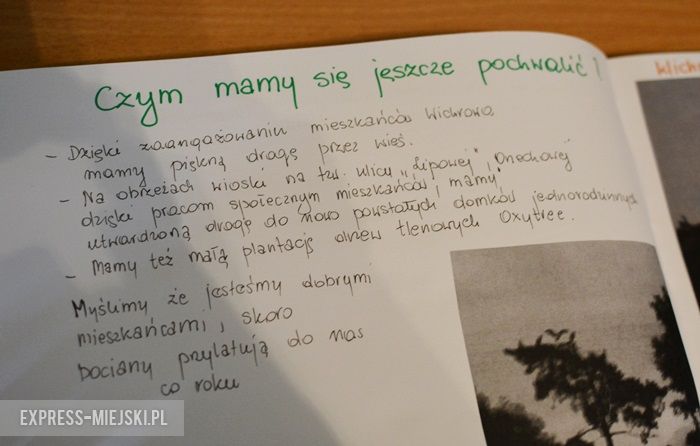 Czym mamy się jeszcze pochwalić!
- Dzięki zaangażowaniu mieszkańców Wichrowa
mamy piękną drogę przez wieś.
- Na obrzeżach wioski na tzw. ulicy "Lipowej", Orzechowej
dzięki pracom społecznym mieszkańców, mamy
utwardzoną drogę do nowo powstałych domków jednorodzinnych
- Mamy też małą plantację drzew tlenowych Oxytree.
Myślimy że jesteśmy dobrymi
mieszkańcami, skoro
bociany przylatują do nas
co roku
EXPRESS-MIEJSKI.PL